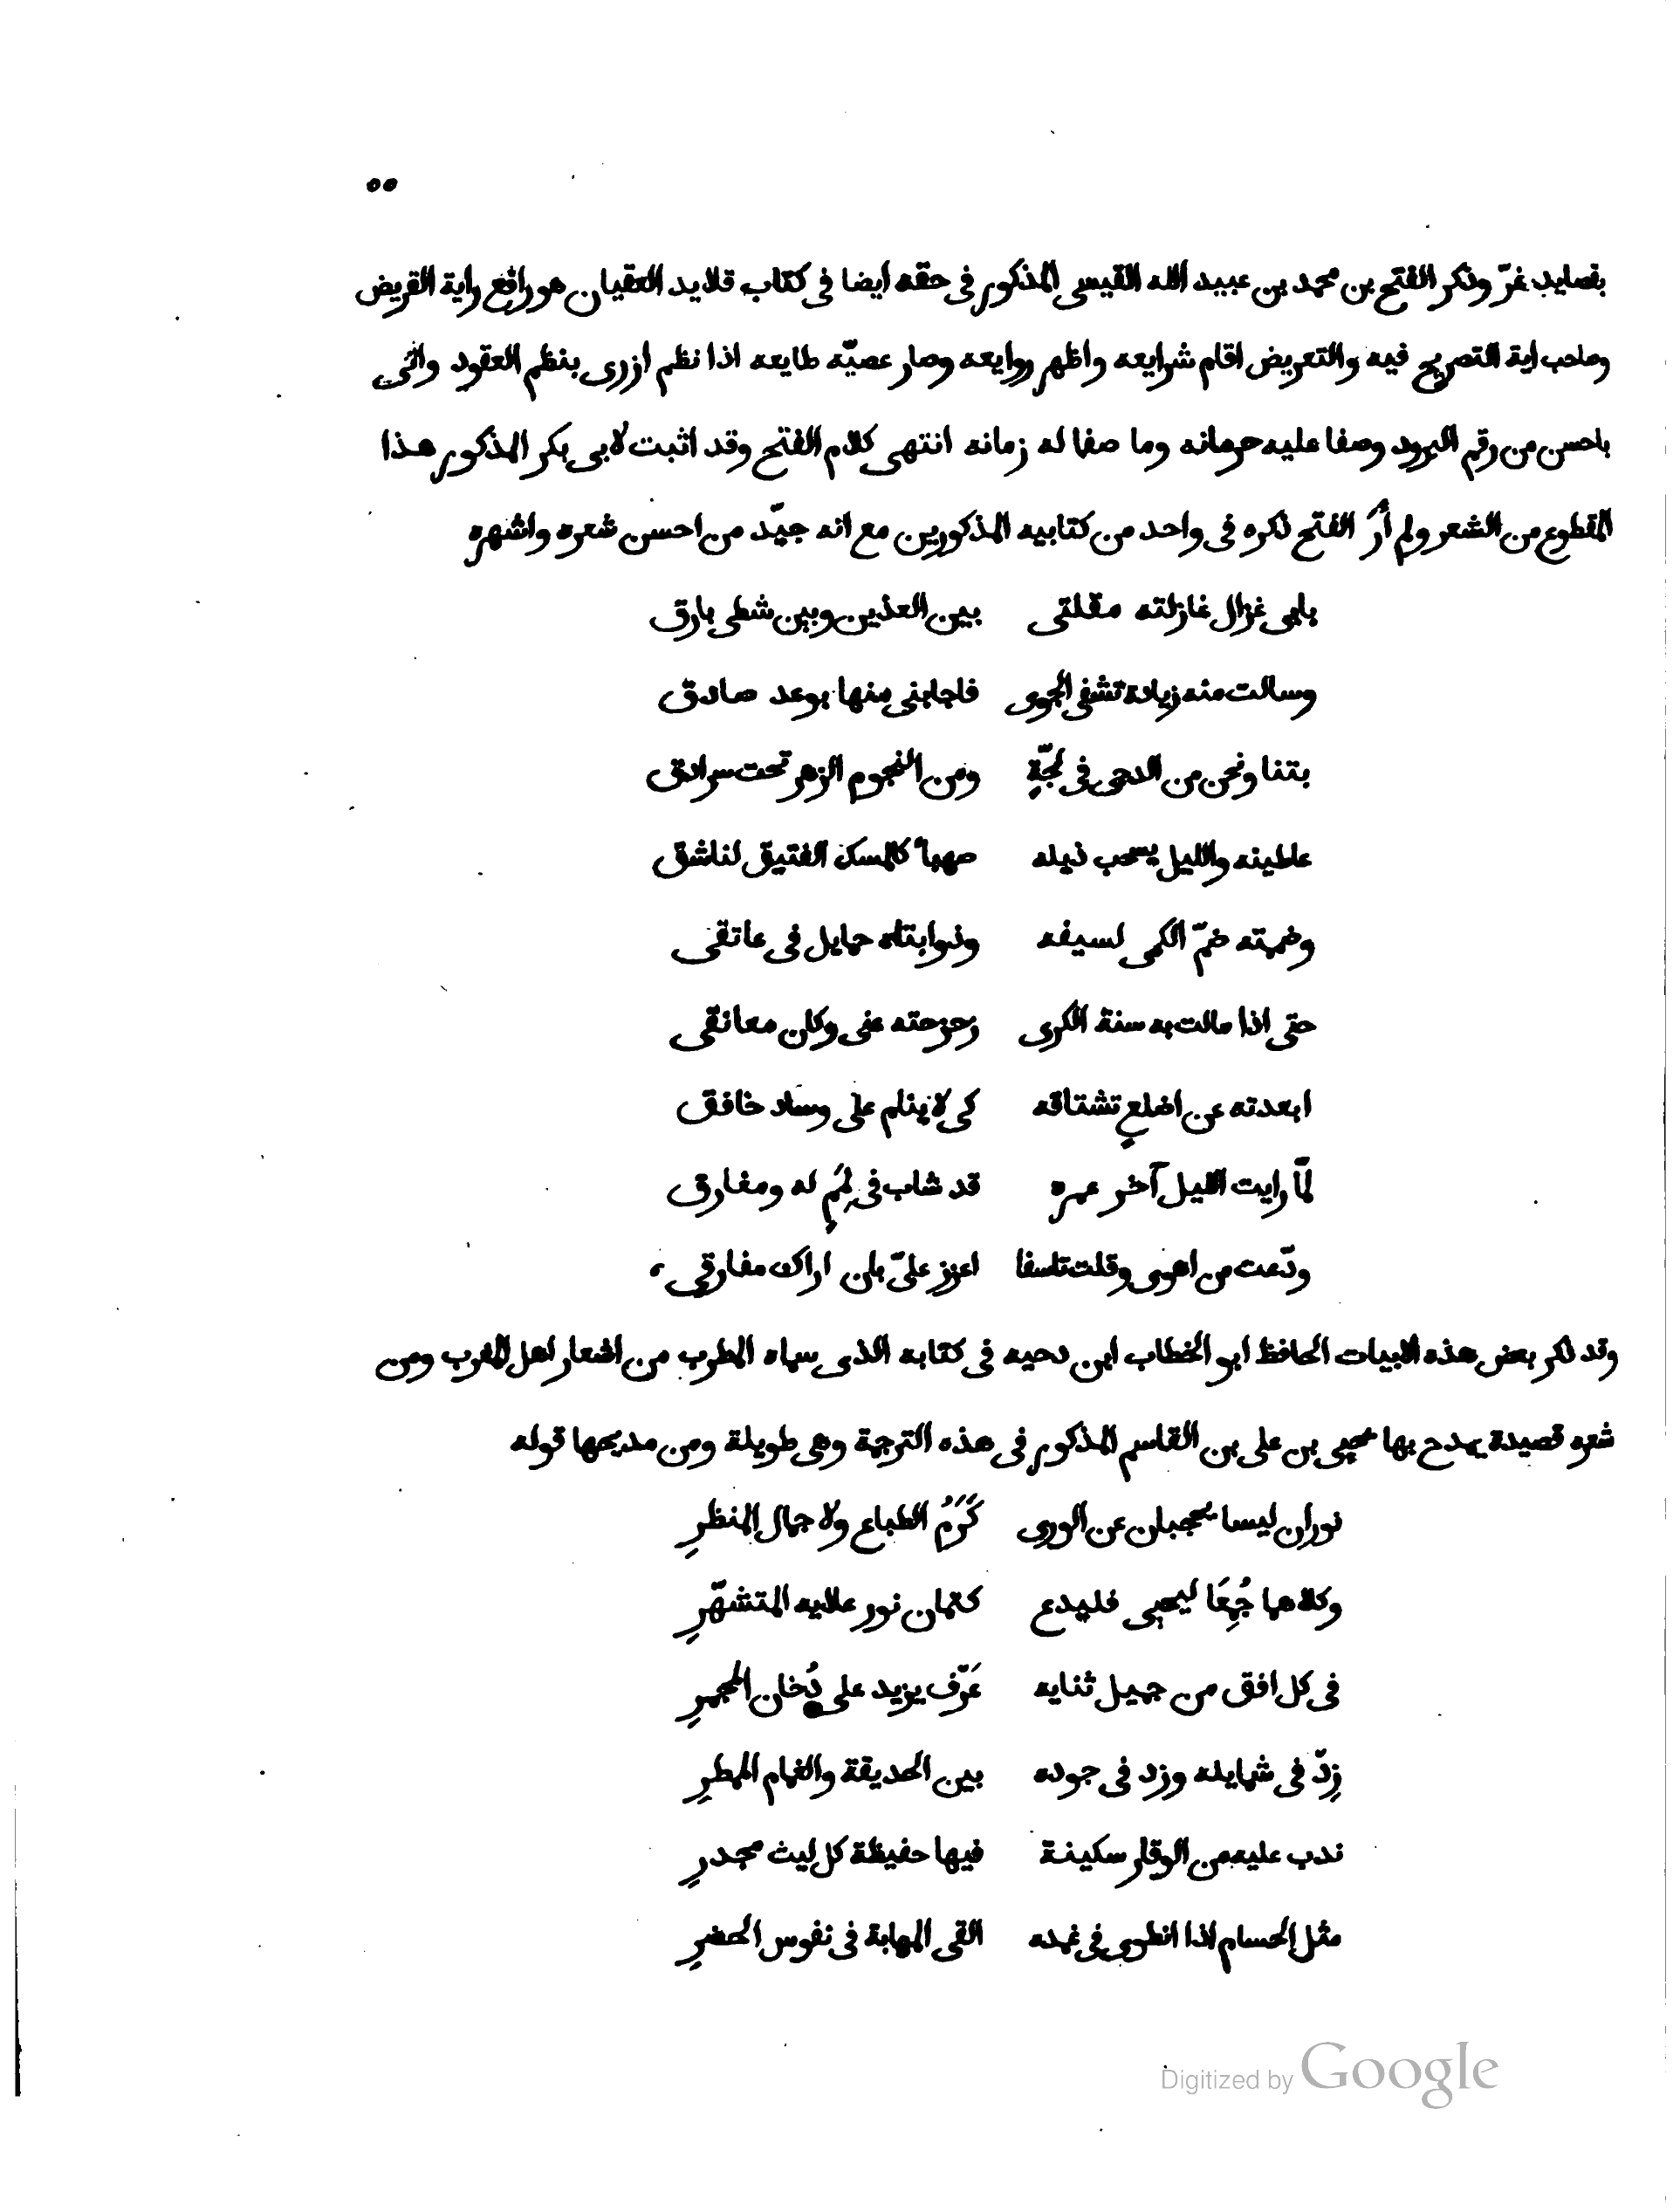 ٥٥
بقصايد غرّ وذكر الفتح بن محمد بن عبيد الله القيسى المذكور فى حقه ايضا فى كتاب قلايد العقيان هو رافع راية القريض
وصاحب اية التصريح فيه والتعريض اقام شرايعه واظهر روايعه وصار عصيّه طايعه اذا نظم ازرى بنظم العقود واتى
باحسن من رقم البرود وصفا عليه حرمانه وما صفا له زمانه انتهى كلام الفتح وقد اثبت لابى بكر المذكور هذا
المقطوع من الشعر ولم أرَ الفتح ذكره فى واحد من كتابيه المذكورين مع انه جيّد من احسن شعره واشهره
بابى غزال غازلته مقلتى بين العذين وبين شطى بارق
وسالت منه زيادة تشفى الجوى فاجابنى منها بوعد صادق
بتنا ونحن من الدجى فى لجّةٍ ومن النجوم الزهر تحت سرادق
عاطيته والليل يسحب ذيله صهبآ كالمسك الفتيق لناشق
وضممته ضمّ الكمى لسيفه وذوابتاه حمايل فى عاتقى
حتى اذا مالت به سنة الكرى زحزحته عنى وكان معانقى
ابعدته عن اضلعٍ تشتاقه كى لا ينام على وساد خافق
لمّا رايت الليل آخر عمره قد شاب فى لِمَمٍ له ومفارق
ودّعت من اهوى وقلت تاسفا اعزز علىّ بان اراك مفارقى
وقد ذكر بعض هذه الابيات الحافظ ابو الخطاب ابن دحيه فى كتابه الذى سماه المطرب من اشعار اهل المغرب ومن
شعره قصيدة يمدح بها يحيى بن على بن القاسم المذكور فى هذه الترجمة وهى طويلة ومن مديحها قوله
نوران ليسا يحجبان عن الورى كَرَمُ الطباع ولا جمال المنظرِ
وكلاهما جُمِعَا ليحيى فليدع كتمان نور علايه المتشهّرِ
فى كل افق من جميل ثنايه عَرّف يزيد على دُخان المجمرِ
زِدّ فى شمايله وزد فى جوده بين الحديقة والغمام الممطرِ
ندب عليه من الوقار سكينة فيها حفيظة كل ليث مجدرِ
مثل الحسام اذا انطوى فى غمده القى المهابة فى نفوس الحضرِ
Digitized by Google